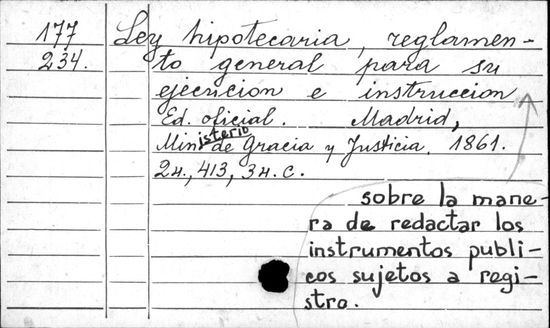 177 Ley hipotecaria, reglamen-
234. to general para su
ejecución e instruccion
Ed. oficial. Madrid,
Ministerio de Gracia y Justicia. 1861.
2н., 413, 3н. c.
sobre la mane-
ra de redactar los
instrumentos publi-
cos sujetos a regi-
stro.